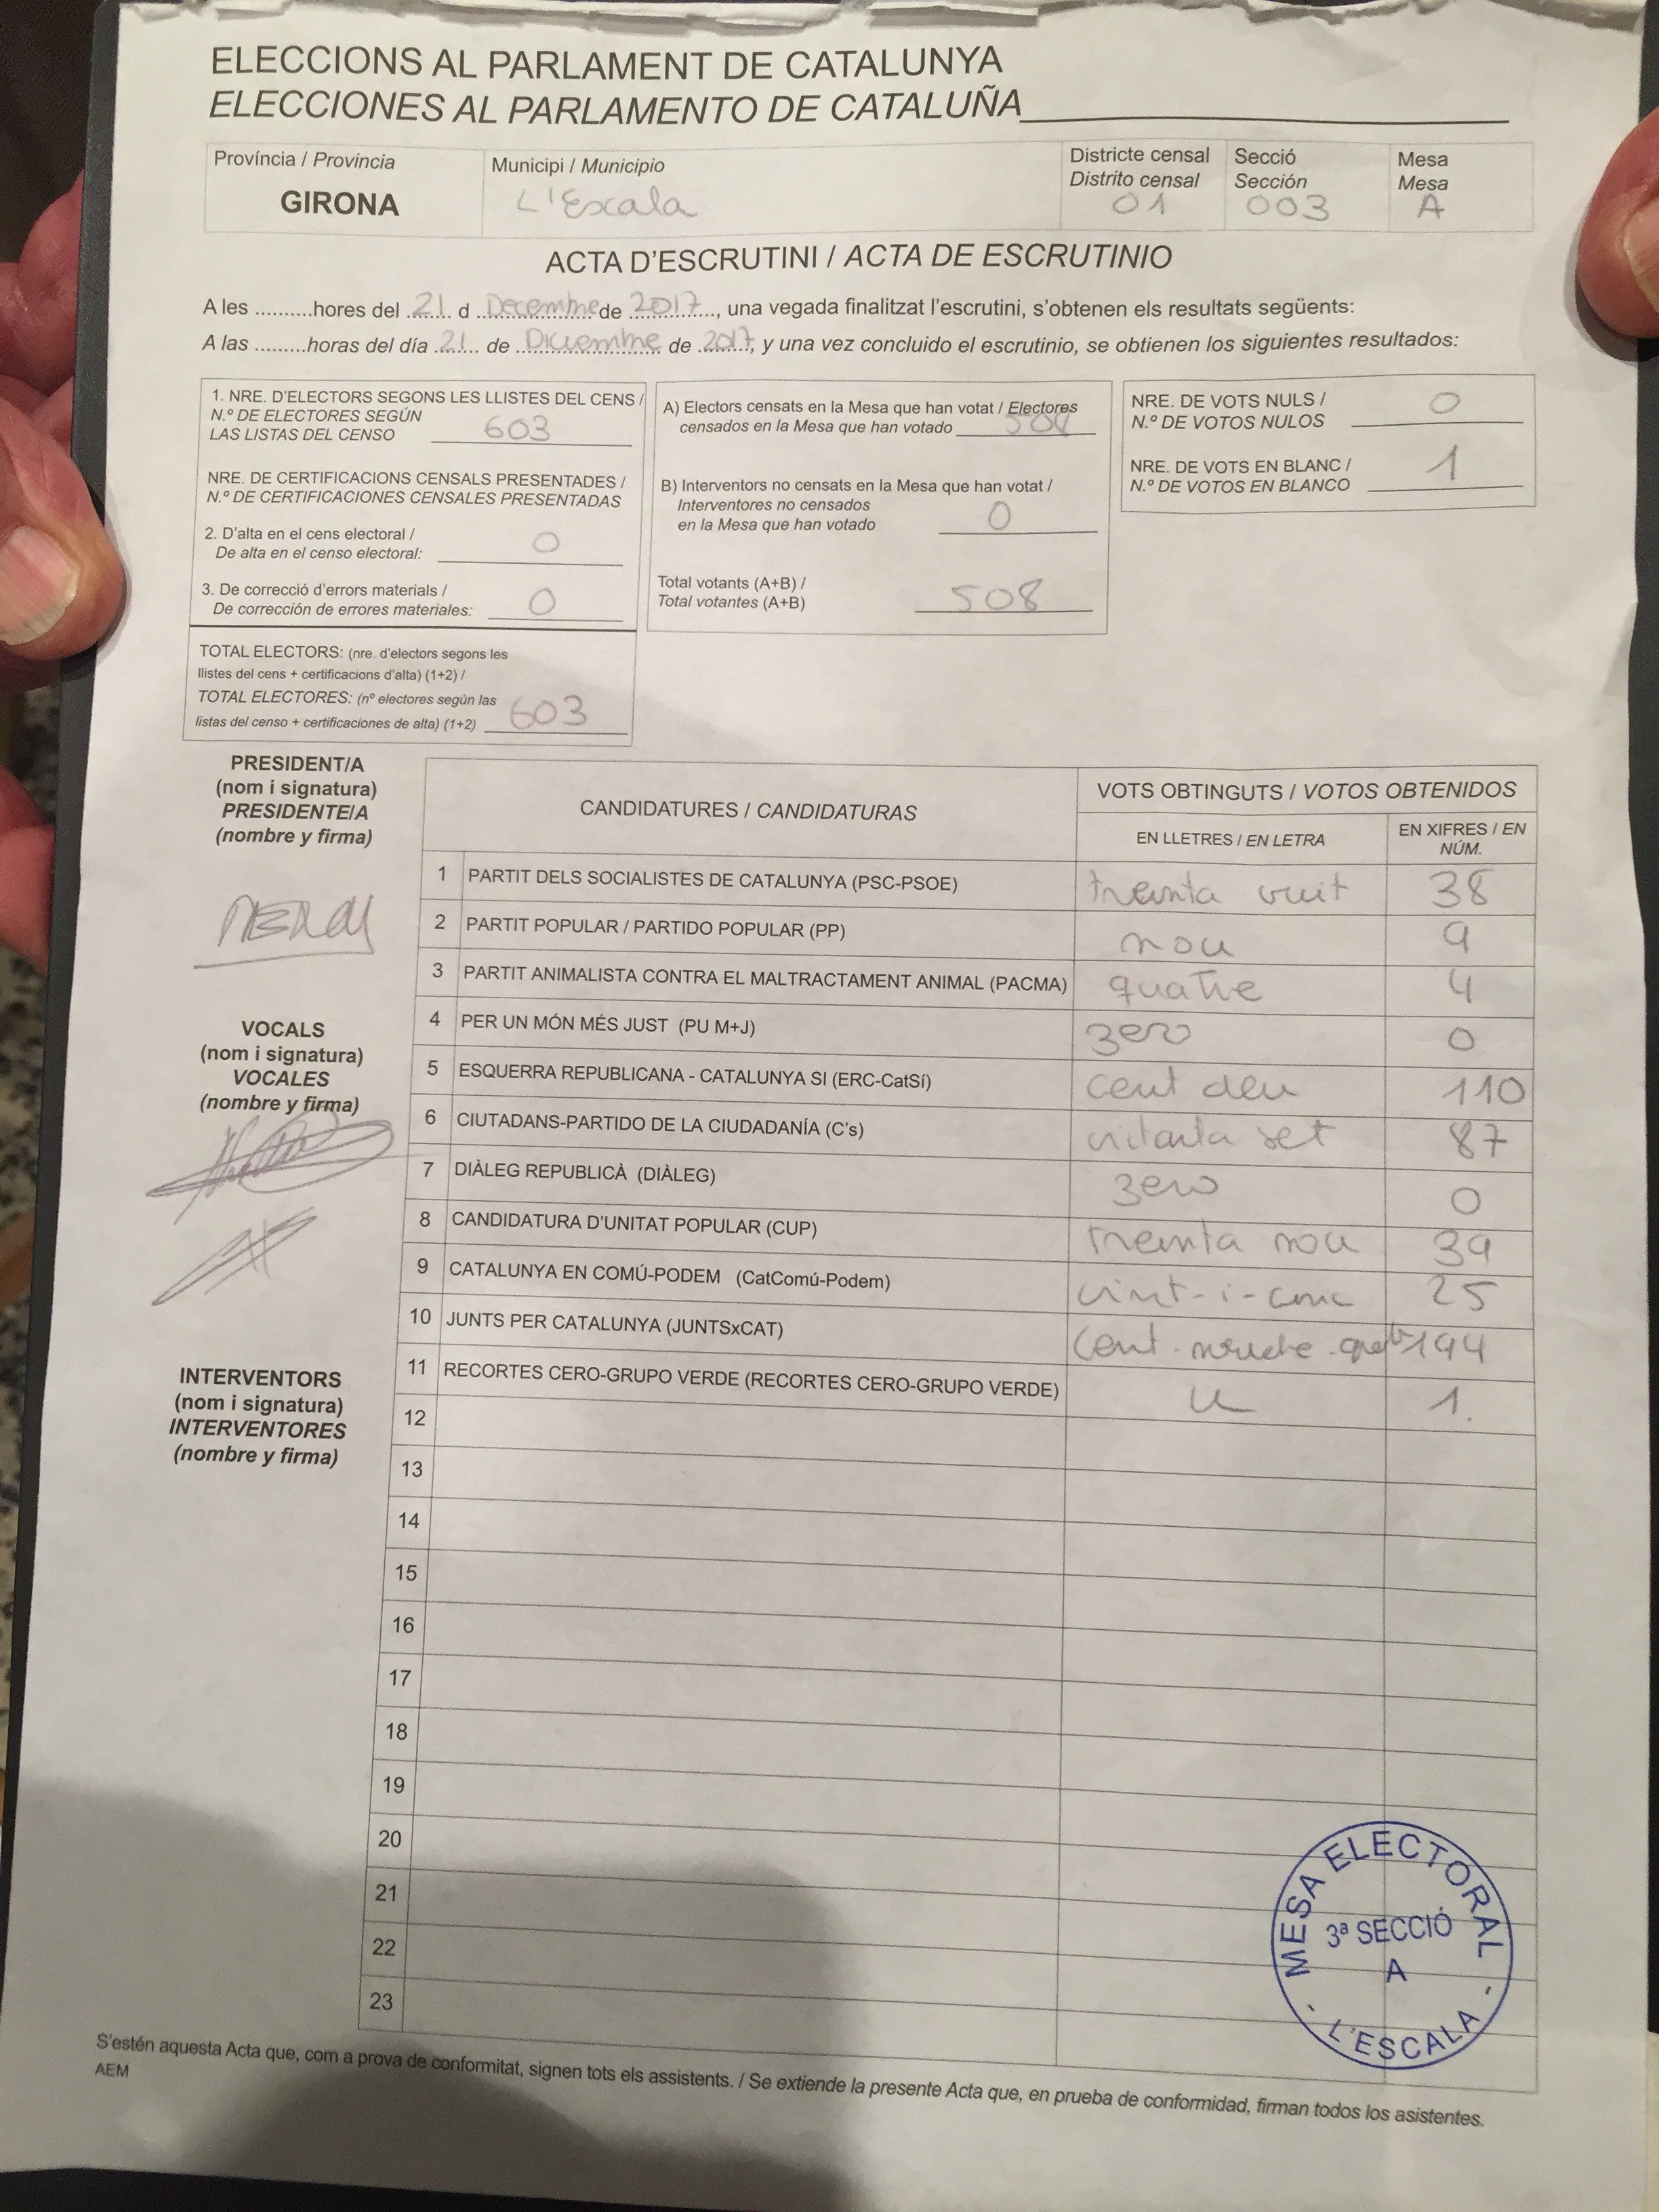 ELECCIONS AL PARLAMENT DE CATALUNYA
ELECCIONES AL PARLAMENTO DE CATALUÑA
Província / Provincia
GIRONA
Municipi / Municipio
L'Escala
Districte censal
Distrito censal
01
Secció
Sección
003
Mesa
Mesa
A
ACTA D'ESCRUTINI / ACTA DE ESCRUTINIO
A les ..........hores del 21 d Decembre de 2017, una vegada finalitzat l'escrutini, s'obtenen els resultats següents:
A las ..........horas del día 21 de Diciembre de 2017, y una vez concluido el escrutinio, se obtienen los siguientes resultados:
1. NRE. D'ELECTORS SEGONS LES LLISTES DEL CENS /
N.º DE ELECTORES SEGÚN
LAS LISTAS DEL CENSO 603
NRE. DE CERTIFICACIONS CENSALS PRESENTADES /
N.º DE CERTIFICACIONES CENSALES PRESENTADAS
2. D'alta en el cens electoral /
De alta en el censo electoral: 0
3. De correcció d'errors materials /
De corrección de errores materiales: 0
TOTAL ELECTORS: (nre. d'electors segons les
llistes del cens + certificacions d'alta) (1+2) /
TOTAL ELECTORES: (nº electores según las
listas del censo + certificaciones de alta) (1+2) 603
A) Electors censats en la Mesa que han votat / Electores
censados en la Mesa que han votado 508
B) Interventors no censats en la Mesa que han votat /
Interventores no censados
en la Mesa que han votado 0
Total votants (A+B) /
Total votantes (A+B) 508
NRE. DE VOTS NULS /
N.º DE VOTOS NULOS 0
NRE. DE VOTS EN BLANC /
N.º DE VOTOS EN BLANCO 1
PRESIDENT/A
(nom i signatura)
PRESIDENTE/A
(nombre y firma)
VOCALS
(nom i signatura)
VOCALES
(nombre y firma)
INTERVENTORS
(nom i signatura)
INTERVENTORES
(nombre y firma)
CANDIDATURES / CANDIDATURAS
VOTS OBTINGUTS / VOTOS OBTENIDOS
EN LLETRES / EN LETRA
EN XIFRES / EN NÚM.
1 PARTIT DELS SOCIALISTES DE CATALUNYA (PSC-PSOE) trenta vuit 38
2 PARTIT POPULAR / PARTIDO POPULAR (PP) nou 9
3 PARTIT ANIMALISTA CONTRA EL MALTRACTAMENT ANIMAL (PACMA) quatre 4
4 PER UN MÓN MÉS JUST (PU M+J) zero 0
5 ESQUERRA REPUBLICANA - CATALUNYA SI (ERC-CatSí) cent deu 110
6 CIUTADANS-PARTIDO DE LA CIUDADANÍA (C's) vitanta set 87
7 DIÀLEG REPUBLICÀ (DIÀLEG) zero 0
8 CANDIDATURA D'UNITAT POPULAR (CUP) trenta nou 39
9 CATALUNYA EN COMÚ-PODEM (CatComú-Podem) vint-i-cinc 25
10 JUNTS PER CATALUNYA (JUNTSxCAT) cent-noranta-quatre 194
11 RECORTES CERO-GRUPO VERDE (RECORTES CERO-GRUPO VERDE) u 1.
12
13
14
15
16
17
18
19
20
21
22
23
MESA ELECTORAL
3ª SECCIÓ
A
L'ESCALA
S'estén aquesta Acta que, com a prova de conformitat, signen tots els assistents. / Se extiende la presente Acta que, en prueba de conformidad, firman todos los asistentes.
AEM